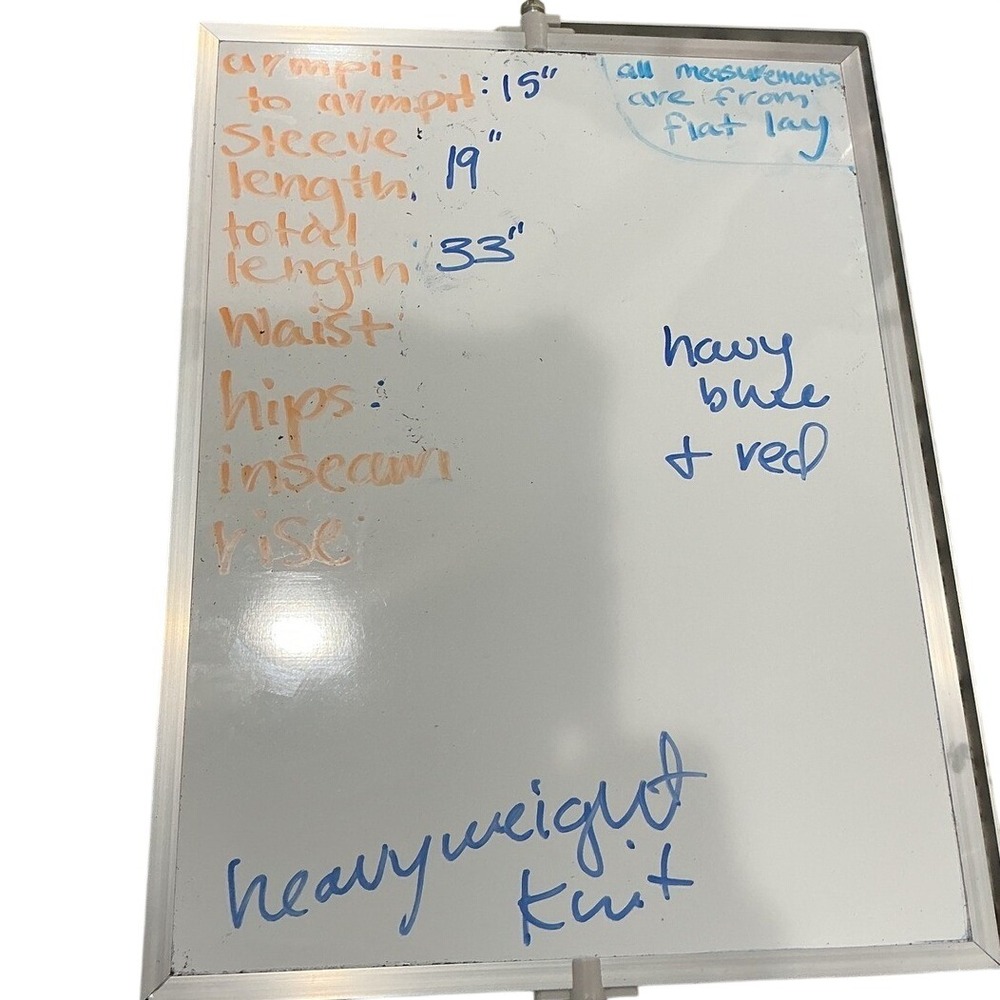 armpit
to armpit: 15"
all measurements
are from
flat lay
Sleeve
length. 19"
total
length: 33"
Waist
hips:
inseam
rise
navy
blue
+ red
heavyweight
Knit